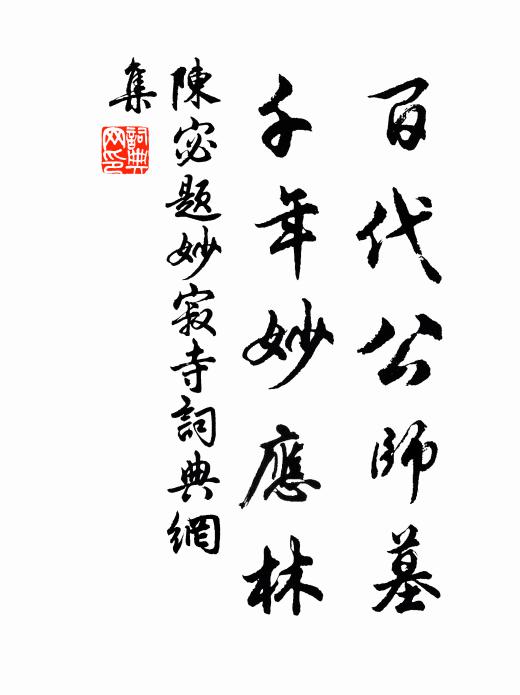 百代公師墓
千年妙應林
陳宓題妙寂寺詞典網
集
詞典網印